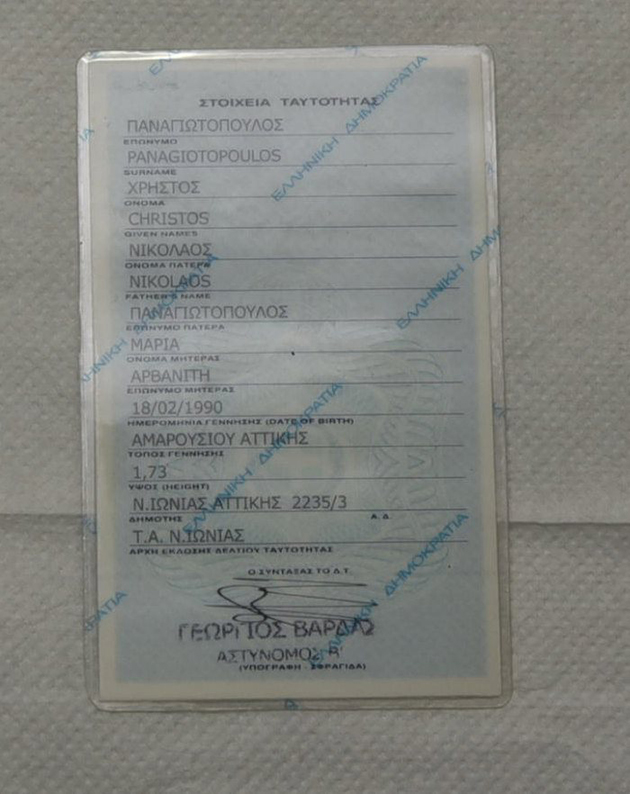 ΣΤΟΙΧΕΙΑ ΤΑΥΤΟΤΗΤΑΣ
ΠΑΝΑΓΙΩΤΟΠΟΥΛΟΣ
ΕΠΩΝΥΜΟ
PANAGIOTOPOULOS
SURNAME
ΧΡΗΣΤΟΣ
ΟΝΟΜΑ
CHRISTOS
GIVEN NAMES
ΝΙΚΟΛΑΟΣ
ΟΝΟΜΑ ΠΑΤΕΡΑ
NIKOLAOS
FATHER'S NAME
ΠΑΝΑΓΙΩΤΟΠΟΥΛΟΣ
ΕΠΩΝΥΜΟ ΠΑΤΕΡΑ
ΜΑΡΙΑ
ΟΝΟΜΑ ΜΗΤΕΡΑΣ
ΑΡΒΑΝΙΤΗ
ΕΠΩΝΥΜΟ ΜΗΤΕΡΑΣ
18/02/1990
ΗΜΕΡΟΜΗΝΙΑ ΓΕΝΝΗΣΗΣ (DATE OF BIRTH)
ΑΜΑΡΟΥΣΙΟΥ ΑΤΤΙΚΗΣ
ΤΟΠΟΣ ΓΕΝΝΗΣΗΣ
1,73
ΥΨΟΣ (HEIGHT)
Ν.ΙΩΝΙΑΣ ΑΤΤΙΚΗΣ 2235/3
ΔΗΜΟΤΗΣ Α.Δ.
Τ.Α. Ν.ΙΩΝΙΑΣ
ΑΡΧΗ ΕΚΔΟΣΗΣ ΔΕΛΤΙΟΥ ΤΑΥΤΟΤΗΤΑΣ
Ο ΣΥΝΤΑΞΑΣ ΤΟ Δ.Τ.
ΓΕΩΡΓΙΟΣ ΒΑΡΔΑΣ
ΑΣΤΥΝΟΜΟΣ Β'
(ΥΠΟΓΡΑΦΗ - ΣΦΡΑΓΙΔΑ)
ΕΛΛΗΝΙΚΗ ΔΗΜΟΚΡΑΤΙΑ
ΕΛΛΗΝΙΚΗ ΔΗΜ
ΕΛΛΗΝΙΚΗ ΔΗΜΟΚΡΑΤΙΑ
ΔΗΜΟΚΡΑΤΙΑ